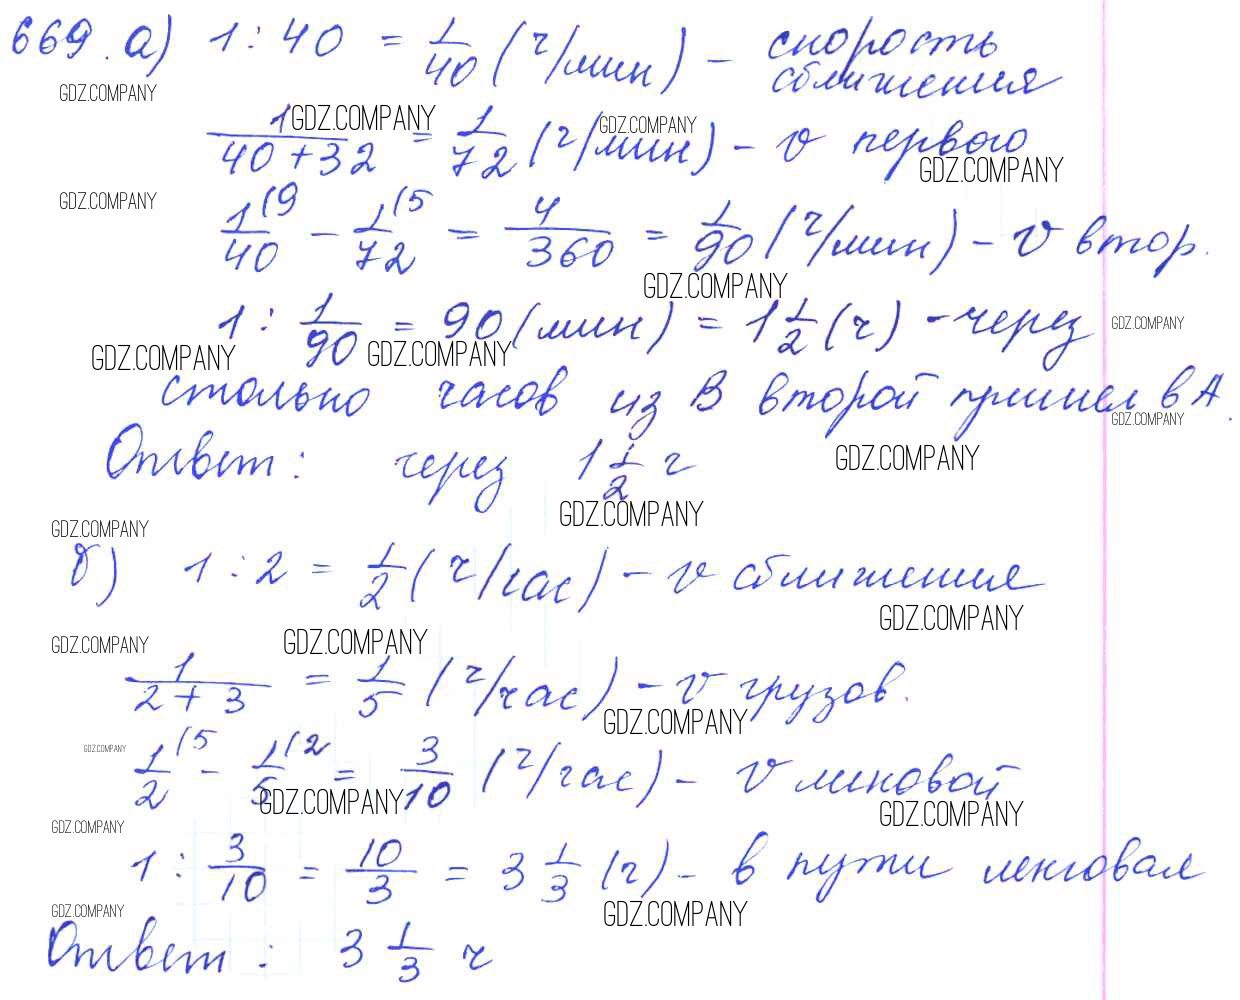 669. а) 1 : 40 = 1/40 (ч/мин) – скорость сближения
GDZ.COMPANY
1/(40 + 32) = 1/72 (ч/мин) – v первого
GDZ.COMPANY GDZ.COMPANY GDZ.COMPANY
GDZ.COMPANY
1/40 (9 – 1/72 (5 = 4/360 = 1/90 (ч/мин) – v втор.
GDZ.COMPANY
1 : 1/90 = 90 (мин) = 1 1/2 (ч) – через
GDZ.COMPANY GDZ.COMPANY GDZ.COMPANY
столько часов из В второй пришел в А.
GDZ.COMPANY
Ответ: через 1 1/2 ч
GDZ.COMPANY
GDZ.COMPANY
GDZ.COMPANY
б) 1 : 2 = 1/2 (ч/час) – v сближения
GDZ.COMPANY
GDZ.COMPANY GDZ.COMPANY
1/(2 + 3) = 1/5 (ч/час) – v грузов.
GDZ.COMPANY
GDZ.COMPANY
1/2 (5 – 1/5 (2 = 3/10 (ч/час) – v легковой
GDZ.COMPANY GDZ.COMPANY
GDZ.COMPANY
1 : 3/10 = 10/3 = 3 1/3 (ч) – в пути легковая
GDZ.COMPANY GDZ.COMPANY
Ответ: 3 1/3 ч